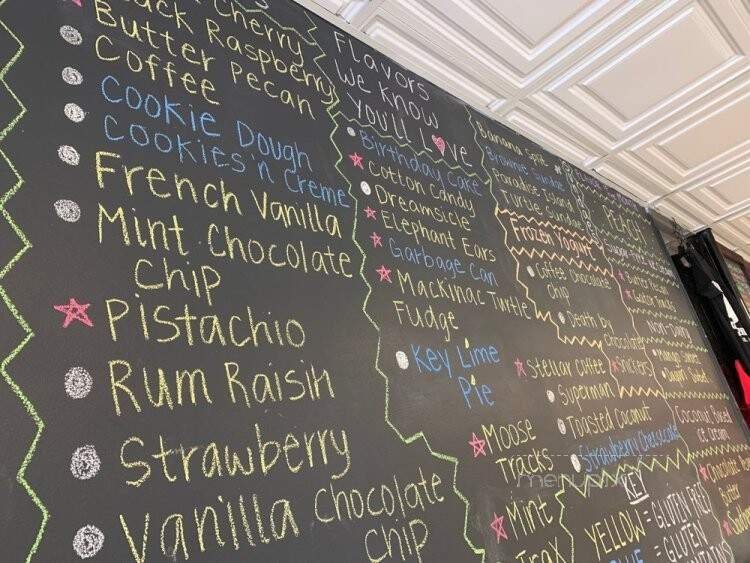 Cherry
Black Raspberry
Butter Pecan
Coffee
Cookie Dough
Cookies'n Creme
French Vanilla
Mint Chocolate
Chip
Pistachio
Rum Raisin
Strawberry
Vanilla Chocolate
Chip
Flavors
We Know
You'll Love
Birthday Cake
Cotton Candy
Dreamsicle
Elephant Ears
Garbage Can
Mackinac Turtle
Fudge
Key Lime
Pie
Moose
Tracks
Mint
Trax
Stellar Coffee
Superman
Toasted Coconut
Strawberry Cheesecake
Snickers
Banana Split
Brownie Sundae
Paradise Island
Turtle Sundae
Frozen Yogurt
Coffee Chocolate
Chip
Death by
Chocolate
PEACH
Butter Pecan
Non-Dairy
Mango
Coconut Based
Ice Cream
Chocolate
Butter
KEY
YELLOW = GLUTEN FREE
BLUE = GLUTEN
menupix